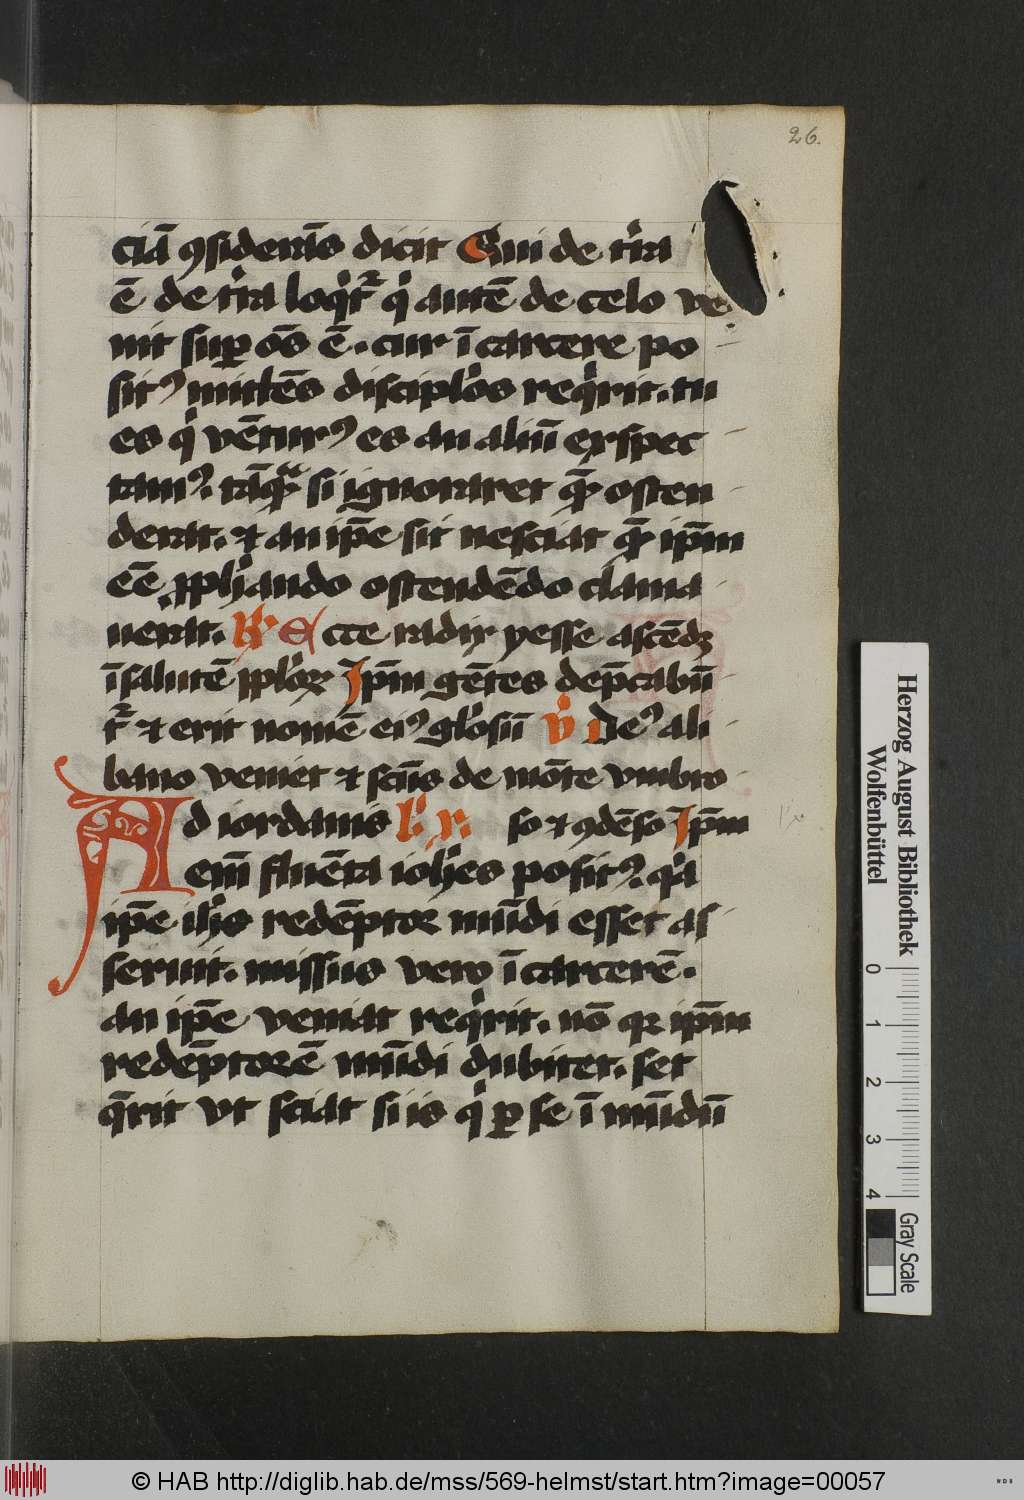 26.
ciā ꝯsiderās dicit Qui de tr̄ra
ē de tr̄ra loqͥt᷑ qͥ autē de celo ve
nit suꝑ oēs ē. cur ī carcere po
sitꝰ mittēs discipl̓os reqͥrit. tu
es qͥ vēturꝰ es an aliū exspec
tamꝰ. tāqᷓ si ignoraret quē osten
derat. ⁊ an ip̄e sit nesciat quē ip̄m
eē ꝓph̓ando ostendēdo clama
uerat. R̸ Ecce radix yesse ascēdꝫ
ī salutē ppl̓oꝝ Ip̄m gētes dep̄cabū
t᷑ ⁊ erit nomē eiꝰ gl̓osū V̓ Deꝰ a li
bano veniet ⁊ scūs de mōte vmbro
so ⁊ ꝯdēso Ip̄m
Ad iordanis
enī fluēta ioh̓es positꝰ. qͥa
ip̄e ih̓s redēptor mūdi esset as
seruit. missus vero ī carcerē.
an ip̄e veniat reqͥrit. nō qꝛ ip̄m
redēptorē mūdi dubitet. set
q̄rit vt sciat si is qͥ ꝑ se ī mūdū
Herzog August Bibliothek
Wolfenbüttel
0 1 2 3 4
Gray Scale
© HAB http://diglib.hab.de/mss/569-helmst/start.htm?image=00057